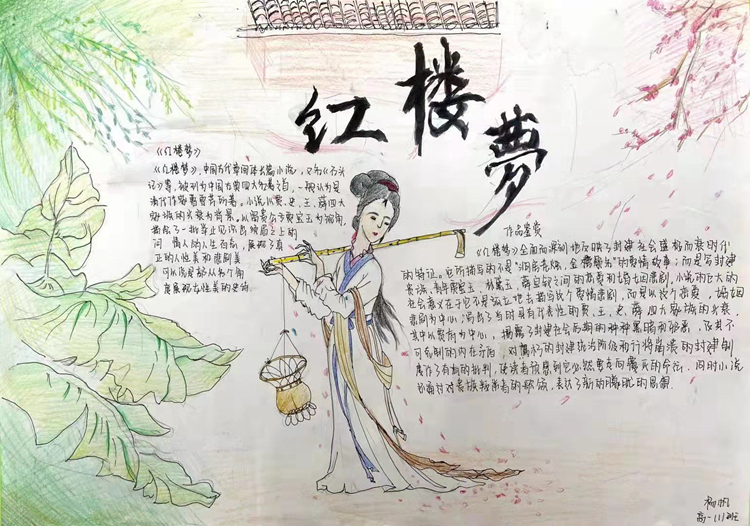 红楼夢
《红楼梦》
《红楼梦》,中国古代章回体长篇小说,又名《石头
记》等,被列为中国古典四大名著之首,一般认为是
清代作家曹雪芹所著。小说以贾、史、王、薛四大
家族的兴衰为背景,以富贵公子贾宝玉为视角,
描绘了一批举止见识出于须眉之上的
闺阁佳人的人生百态,展现了真
正的人性美和悲剧美
可以说是部从各个角
度展现女性美的史诗。
作品鉴赏
《红楼梦》全面而深刻地反映了封建社会盛极而衰时代
的特征。它所描写的不是“洞房花烛、金榜题名”的爱情故事;而是写封建
贵族青年贾宝玉、林黛玉、薛宝钗之间的恋爱和婚姻悲剧。小说的巨大的
社会意义在于它不是孤立地去描写这个爱情悲剧,而是以这个恋爱、婚姻
悲剧为中心,写出了当时具有代表性的贾、王、史、薛四大家族的兴衰,
其中以贾府为中心,揭露了封建社会后期的种种黑暗和罪恶,及其不
可克制的内在矛盾,对腐朽的封建统治阶级和行将崩溃的封建制
度作了有力的批判,使读者预感到它必然要走向覆灭的命运。同时小说
还通过对贵族叛逆者的歌颂,表达了新的朦胧的理想
杨帆
高一(1)班